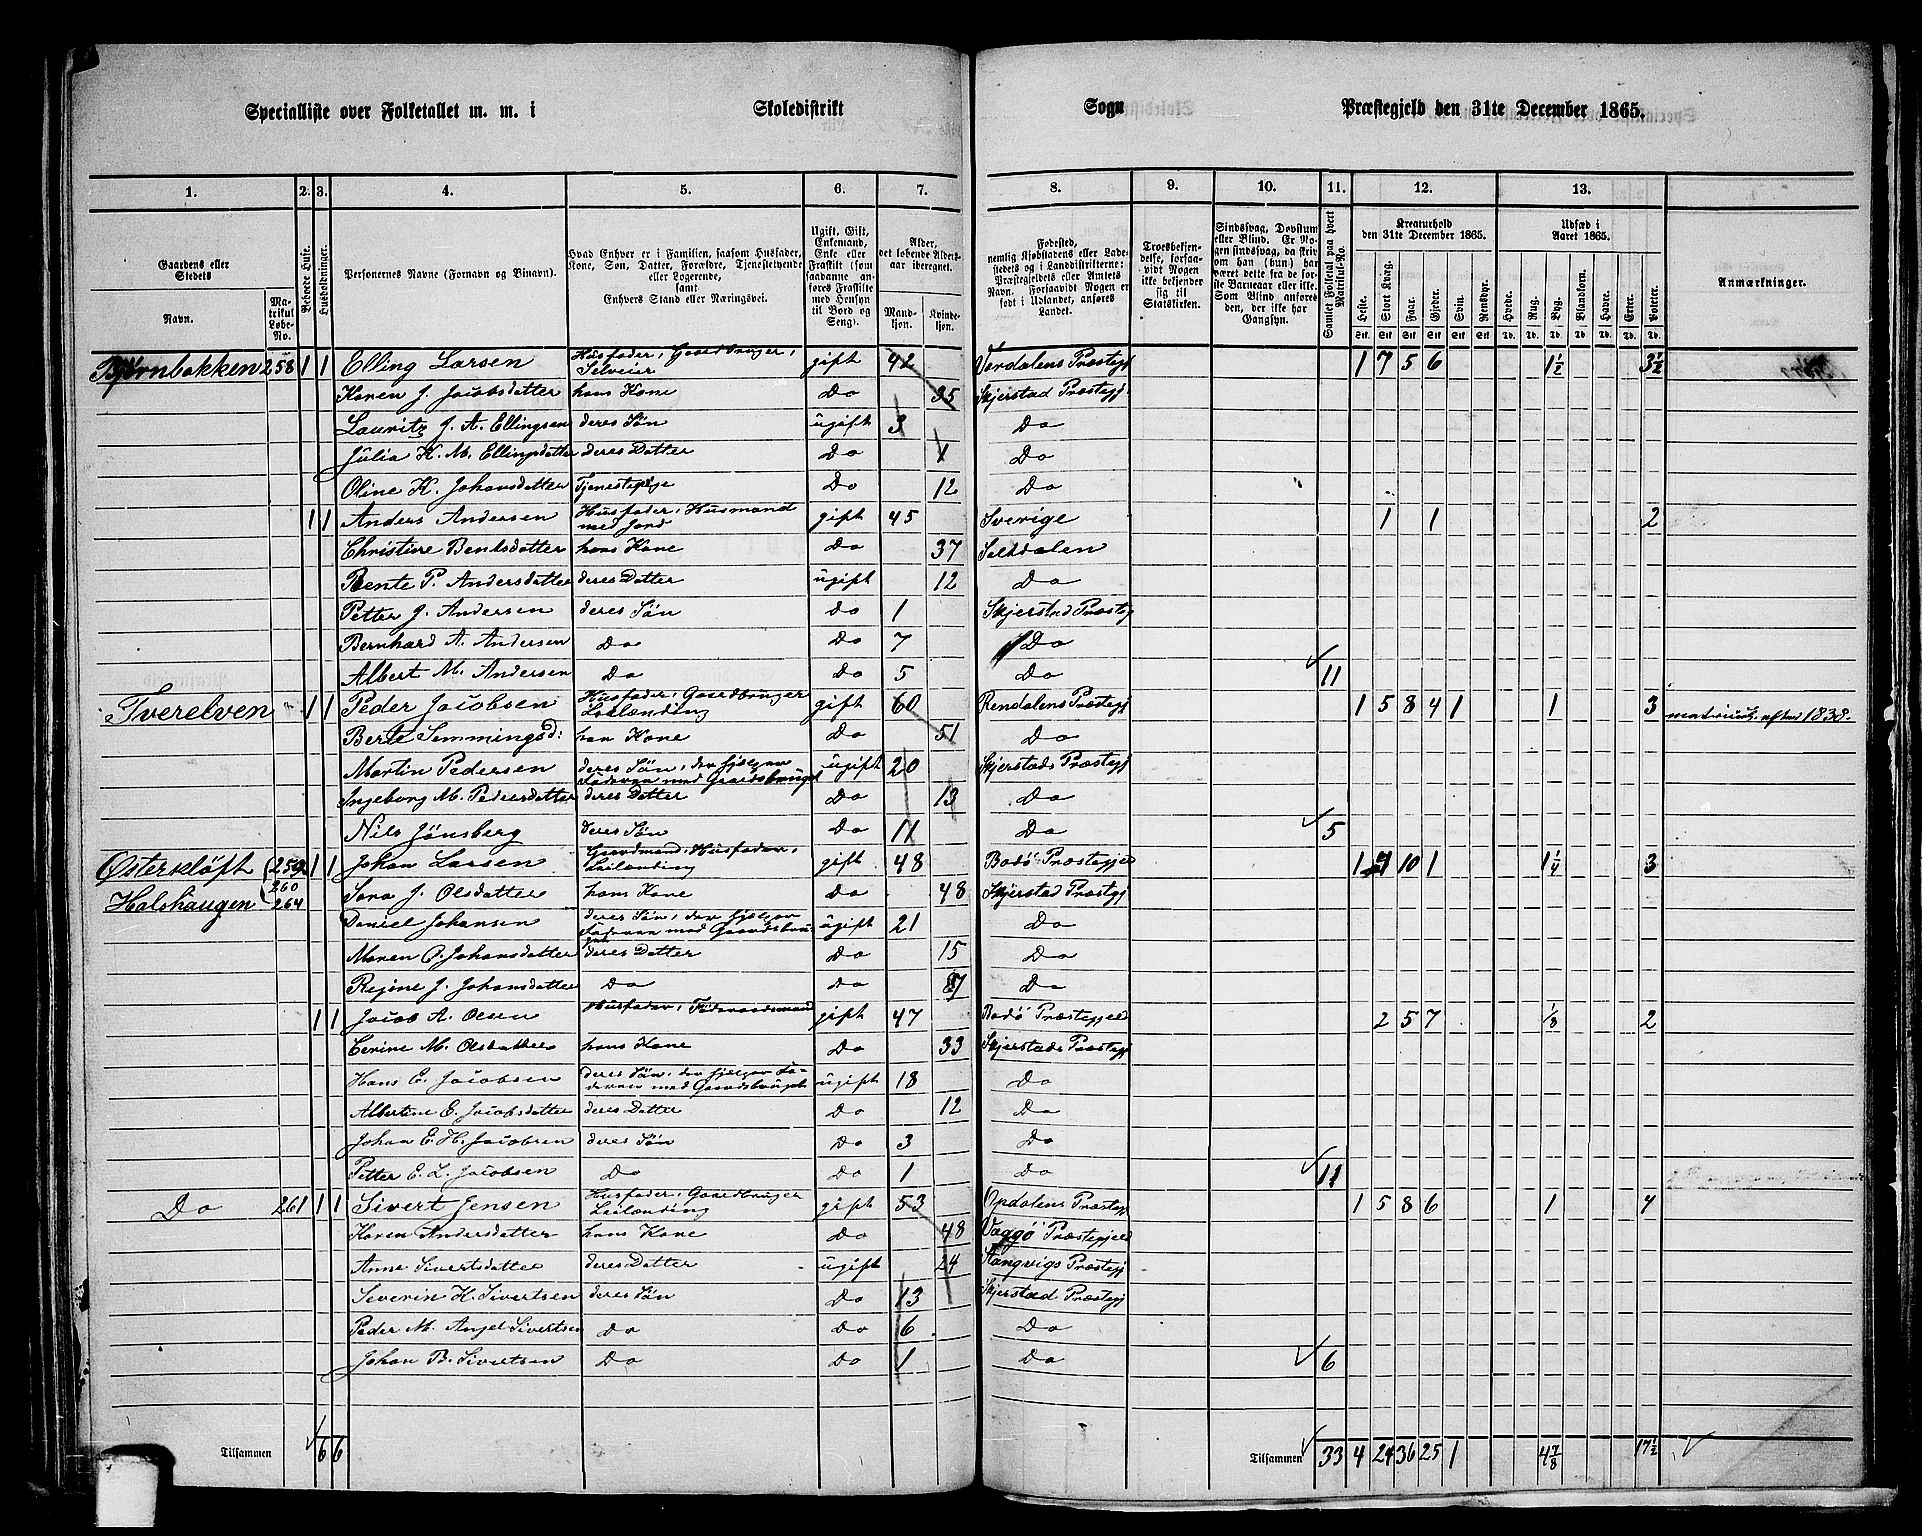 Specialliste over Folketallet m. m. i Skoledistrikt Sogn Præstegjeld den 31te December 1865.
1. 2. 3. 4. 5. 6. 7. 8. 9. 10. 11. 12. 13.
Gaardens eller Stedets
Navn.
Matrikul Løbe-No.
Beboede Huse.
Husholdninger.
Personernes Navne (Fornavn og Binavn).
Hvad Enhver er i Familien, saasom Husfader, Kone, Søn, Datter, Forældre, Tjenestetyende eller Logerende, samt Enhvers Stand eller Næringsvei.
Ugift, Gift, Enkemand, Enke eller Fraskilt (som saadanne anføres Fraskilte med Hensyn til Bord og Seng).
Alder, det løbende Aldersaar iberegnet.
Mandkjøn. Kvindekjøn.
Fødested, nemlig Kjøbstadens eller Ladestedets og i Landdistrikterne: Præstegjeldets eller Amtets Navn. Forsaavidt Nogen er født i Udlandet, anføres Landet.
Troesbekjendelse, forsaavidt Nogen ikke bekjender sig til Statskirken.
Sindssvag, Døvstum eller Blind. Er Nogen sindssvag, da skrives, om han (hun) har været dette fra de første Barneaar eller ikke. Som Blind anføres den, der ikke har Gangsyn.
Samlet Folketal paa hvert Matrikul-No.
Kreaturhold den 31te December 1865.
Heste. Stort Kvæg. Faar. Gjeder. Svin. Rensdyr.
Udsæd i Aaret 1865.
Hvede. Rug. Byg. Blandkorn. Havre. Erter. Poteter.
Anmærkninger.
Bjørnbakken 258 1 1 Elling Larsen Husfader, Gaardbruger, Selveier gift 42 Værdalens Præstegj 1 7 5 6 1½ 3½
Karen J. Jacobsdatter hans Kone Do 35 Skjerstad Præstegj
Lauritz J. A. Ellingsen deres Søn ugift 3 Do
Julia K. M. Ellingsdatter deres Datter Do 1 Do
Oline K. Johansdatter Tjenestepige Do 12 Do
1 1 Anders Andersen Husfader, Husmand med Jord gift 45 Sverige 1 1 2
Christine Bentsdatter hans Kone Do 37 Saltdalen
Bente P. Andersdatter deres Datter ugift 12 Do
Petter J. Andersen deres Søn Do 1 Skjerstad Præsteg
Bernhard A. Andersen Do Do 7 Do
Albert M. Andersen Do Do 5 Do 11
Tverelven 1 1 Peder Jacobsen Husfader, Gaardbruger Leilænding gift 60 Rendalens Præstegj 1 5 8 4 1 1 3 matriculi. efter 1838.
Berte Semmingsd: han Kone Do 51 Do
Martin Pedersen deres Søn, der hjelper Faderen med Gaardsbruget ugift 20 Skjerstads Præstegj
Ingeborg M. Pedersdatter deres Datter Do 13 Do
Nils Jönsberg deres Søn Do 11 Do 5
Østerkløft 259 1 1 Johan Larsen Gaardmand, Husfader, Leilænding gift 48 Bodø Præstegjeld 1 10 1 1¼ 3
260
Halshaugen 264 Sara J. Olsdatter hans Kone Do 48 Skjerstad Præstegj
Daniel Johansen deres Søn, der hjelper Faderen med Gaardsbruget ugift 21 Do
Maren O. Johansdatter deres Datter Do 15 Do
Regine J. Johansdatter Do Do Do
1 1 Jacob A. Olsen Husfader, Føderaadsmand gift 47 Bodø Præstegjeld 2 5 7 1/8 2
Cerine M. Olsdatter hans Kone Do 33 Skjerstads Præstegj
Hans E. Jacobsen deres Søn, der hjelper Faderen med Gaardsbruget ugift 18 Do
Albertine E. Jacobsdatter deres Datter Do 12 Do
Johan E. H. Jacobsen deres Søn Do 3 Do
Petter E. L. Jacobsen Do Do 1 Do 11
Do 261 1 1 Sivert Jensen Husfader, Gaardbruger Leilænding gift 53 Opdalens Præstegj 1 5 8 6 1 4
Karen Andersdatter hans Kone Do 48 Vaggø Præstegjeld
Anne Sivertsdatter deres Datter ugift 24 Stangvigs Præstegj
Severin H. Sivertsen deres Søn Do 13 Skjerstad Præstegj
Peder M. Angel Sivertsen Do Do 6 Do
Johan B. Sivertsen Do Do 1 Do 6
Tilsammen 6 6 Tilsammen 33 4 24 36 25 1 4 7/8 17½